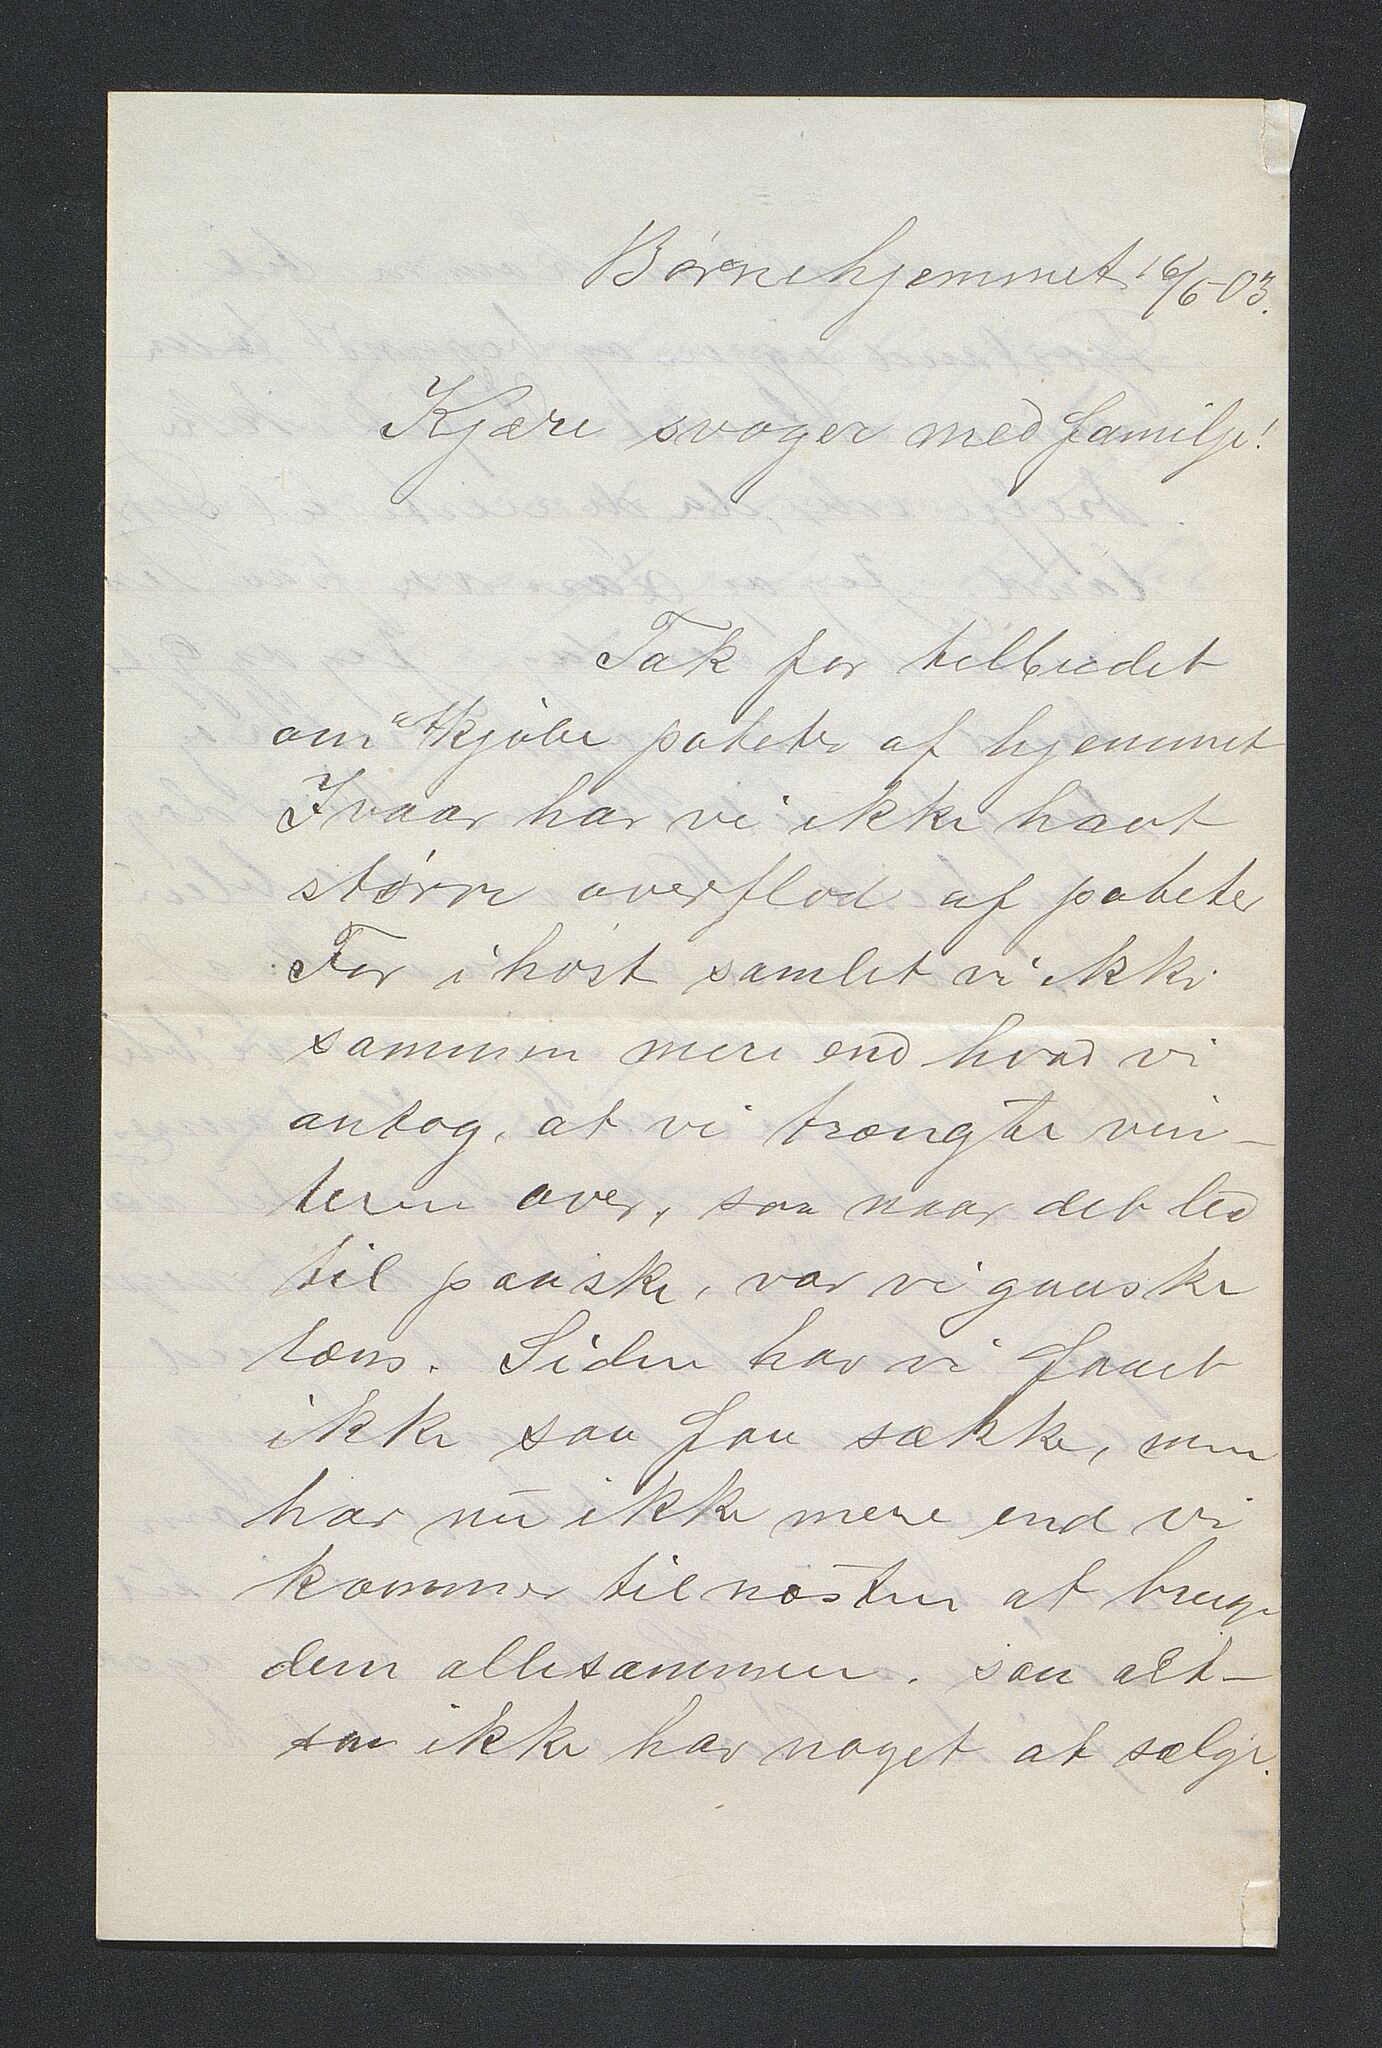 Børnehjemmet 16/6 03.
Kjære svoger med familje!
Tak for tilbudet
om at kjøbe poteter af hjemmet
I vaar har vi ikke havt
større overflod af poteter
For i høst samlet vi ikke
sammen mere end hvad vi
antog, at vi trængte vin-
teren over, saa naar det led
til paaske, var vi ganske
læns. Siden har vi faaet
ikke saa faa sække, men
har nu ikke mere end vi
kommer til næsten at bruge
dem allesammen. saa alt-
saa ikke har noget at sælge.